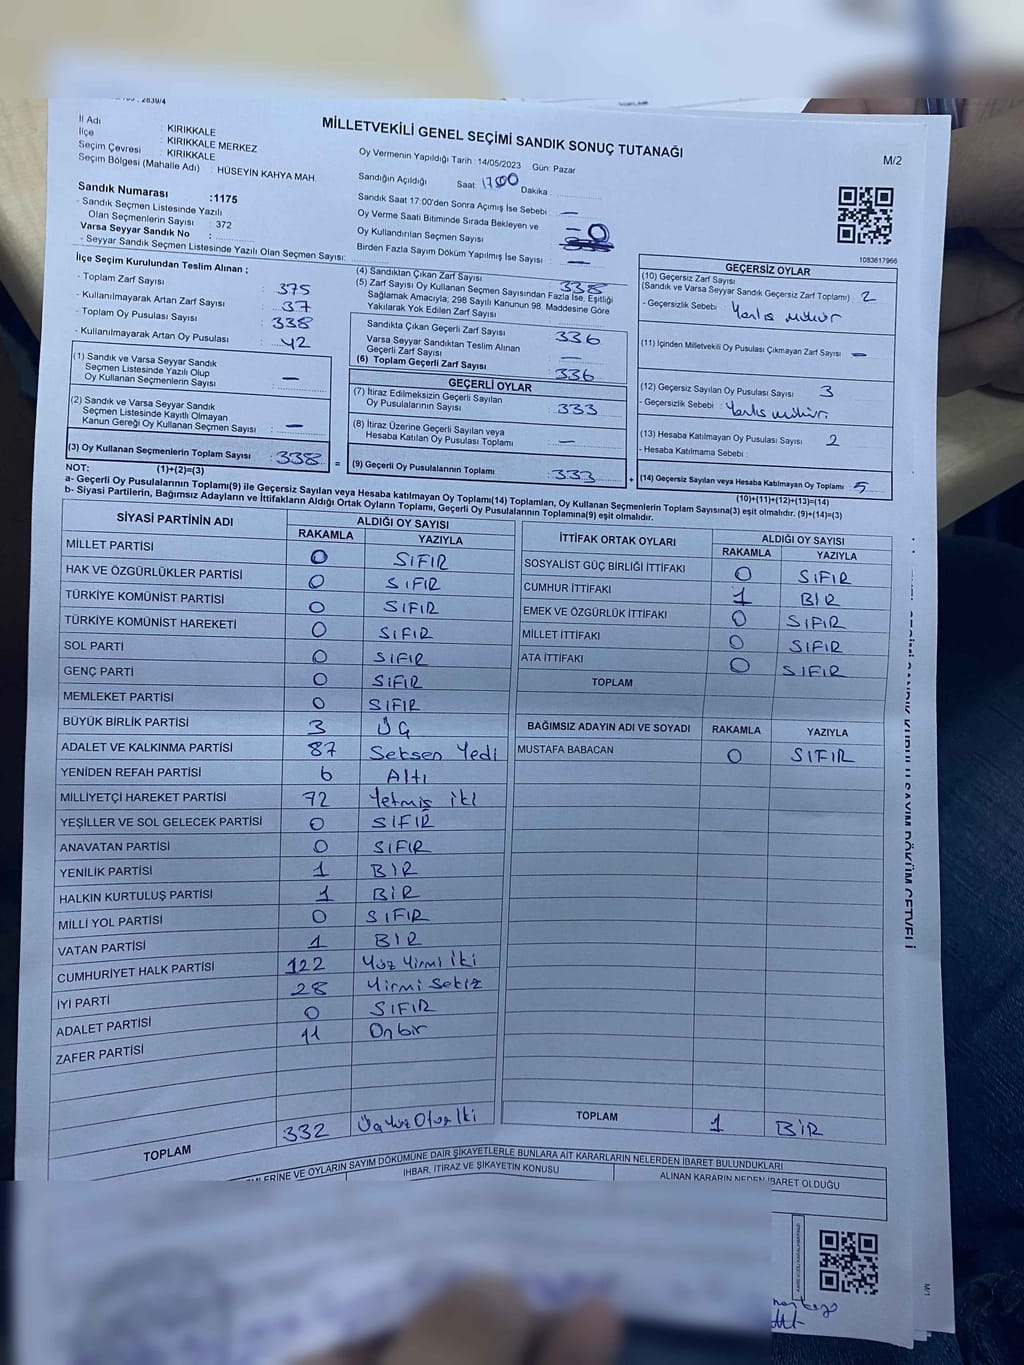 2839/4
İl Adı : KIRIKKALE
İlçe : KIRIKKALE MERKEZ
Seçim Çevresi : KIRIKKALE
Seçim Bölgesi (Mahalle Adı) : HÜSEYİN KAHYA MAH.
MİLLETVEKİLİ GENEL SEÇİMİ SANDIK SONUÇ TUTANAĞI
M/2
Oy Vermenin Yapıldığı Tarih : 14/05/2023 Gün: Pazar
Sandığın Açıldığı Saat: 1700 Dakika :
Sandık Saat 17:00'den Sonra Açımış İse Sebebi : —
Oy Verme Saati Bitiminde Sırada Bekleyen ve
Oy Kullandırılan Seçmen Sayısı : 0
Birden Fazla Sayım Döküm Yapılmış İse Sayısı : —
Sandık Numarası :1175
- Sandık Seçmen Listesinde Yazılı
Olan Seçmenlerin Sayısı : 372
Varsa Seyyar Sandık No :
- Seyyar Sandık Seçmen Listesinde Yazılı Olan Seçmen Sayısı:
1083617966
İlçe Seçim Kurulundan Teslim Alınan ;
- Toplam Zarf Sayısı : 375
- Kullanılmayarak Artan Zarf Sayısı : 37
- Toplam Oy Pusulası Sayısı : 338
- Kullanılmayarak Artan Oy Pusulası : 42
(1) Sandık ve Varsa Seyyar Sandık
Seçmen Listesinde Yazılı Olup
Oy Kullanan Seçmenlerin Sayısı : —
(2) Sandık ve Varsa Seyyar Sandık
Seçmen Listesinde Kayıtlı Olmayan
Kanun Gereği Oy Kullanan Seçmen Sayısı : —
(3) Oy Kullanan Seçmenlerin Toplam Sayısı : 338 =
(1)+(2)=(3)
(4) Sandıktan Çıkan Zarf Sayısı : 338
(5) Zarf Sayısı Oy Kullanan Seçmen Sayısından Fazla İse, Eşitliği
Sağlamak Amacıyla; 298 Sayılı Kanunun 98. Maddesine Göre
Yakılarak Yok Edilen Zarf Sayısı :
Sandıkta Çıkan Geçerli Zarf Sayısı : 336
Varsa Seyyar Sandıktan Teslim Alınan
Geçerli Zarf Sayısı : —
(6) Toplam Geçerli Zarf Sayısı : 336
GEÇERLİ OYLAR
(7) İtiraz Edilmeksizin Geçerli Sayılan
Oy Pusulalarının Sayısı : 333
(8) İtiraz Üzerine Geçerli Sayılan veya
Hesaba Katılan Oy Pusulası Toplamı : —
(9) Geçerli Oy Pusulalarının Toplamı : 333 +
GEÇERSİZ OYLAR
(10) Geçersiz Zarf Sayısı
(Sandık ve Varsa Seyyar Sandık Geçersiz Zarf Toplamı) : 2
- Geçersizlik Sebebi : Yanlış mühür
(11) İçinden Milletvekili Oy Pusulası Çıkmayan Zarf Sayısı : —
(12) Geçersiz Sayılan Oy Pusulası Sayısı : 3
- Geçersizlik Sebebi : Yanlış mühür
(13) Hesaba Katılmayan Oy Pusulası Sayısı : 2
- Hesaba Katılmama Sebebi :
(14) Geçersiz Sayılan veya Hesaba Katılmayan Oy Toplamı : 5
(10)+(11)+(12)+(13)=(14)
NOT:
a- Geçerli Oy Pusulalarının Toplamı(9) ile Geçersiz Sayılan veya Hesaba katılmayan Oy Toplamı(14) Toplamları, Oy Kullanan Seçmenlerin Toplam Sayısına(3) eşit olmalıdır. (9)+(14)=(3)
b- Siyasi Partilerin, Bağımsız Adayların ve İttifakların Aldığı Ortak Oyların Toplamı, Geçerli Oy Pusulalarının Toplamına(9) eşit olmalıdır.
SİYASİ PARTİNİN ADI ALDIĞI OY SAYISI
RAKAMLA YAZIYLA
MİLLET PARTİSİ 0 SIFIR
HAK VE ÖZGÜRLÜKLER PARTİSİ 0 SIFIR
TÜRKİYE KOMÜNİST PARTİSİ 0 SIFIR
TÜRKİYE KOMÜNİST HAREKETİ 0 SIFIR
SOL PARTİ 0 SIFIR
GENÇ PARTİ 0 SIFIR
MEMLEKET PARTİSİ 0 SIFIR
BÜYÜK BİRLİK PARTİSİ 3 ÜÇ
ADALET VE KALKINMA PARTİSİ 87 Seksen Yedi
YENİDEN REFAH PARTİSİ 6 Altı
MİLLİYETÇİ HAREKET PARTİSİ 72 Yetmiş İki
YEŞİLLER VE SOL GELECEK PARTİSİ 0 SIFIR
ANAVATAN PARTİSİ 0 SIFIR
YENİLİK PARTİSİ 1 BİR
HALKIN KURTULUŞ PARTİSİ 1 BİR
MİLLİ YOL PARTİSİ 0 SIFIR
VATAN PARTİSİ 1 BİR
CUMHURİYET HALK PARTİSİ 122 Yüz Yirmi İki
İYİ PARTİ 28 Yirmi Sekiz
ADALET PARTİSİ 0 SIFIR
ZAFER PARTİSİ 11 Onbir
TOPLAM 332 Üçyüz Otuz İki
İTTİFAK ORTAK OYLARI ALDIĞI OY SAYISI
RAKAMLA YAZIYLA
SOSYALİST GÜÇ BİRLİĞİ İTTİFAKI 0 SIFIR
CUMHUR İTTİFAKI 1 BİR
EMEK VE ÖZGÜRLÜK İTTİFAKI 0 SIFIR
MİLLET İTTİFAKI 0 SIFIR
ATA İTTİFAKI 0 SIFIR
TOPLAM
BAĞIMSIZ ADAYIN ADI VE SOYADI RAKAMLA YAZIYLA
MUSTAFA BABACAN 0 SIFIR
TOPLAM 1 BİR
OYLARIN SAYIM DÖKÜMÜNE DAİR ŞİKAYETLERLE BUNLARA AİT KARARLARIN NELERDEN İBARET BULUNDUKLARI
İHBAR, İTİRAZ VE ŞİKAYETİN KONUSU
ALINAN KARARIN NEDEN İBARET OLDUĞU
M/1